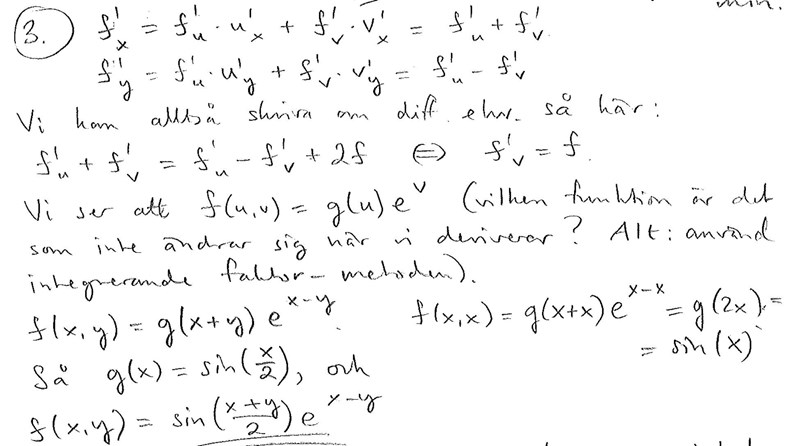 min.
3. f'x = f'u · u'x + f'v · v'x = f'u + f'v
f'y = f'u · u'y + f'v · v'y = f'u - f'v
Vi kan alltså skriva om diff. ekv. så här:
f'u + f'v = f'u - f'v + 2f ⇔ f'v = f.
Vi ser att f(u,v) = g(u) e^v (vilken funktion är det
som inte ändrar sig när vi deriverar? Alt: använd
integrerande faktor-metoden).
f(x,y) = g(x+y) e^(x-y).
f(x,x) = g(x+x) e^(x-x) = g(2x) =
= sin(x)
Så g(x) = sin(x/2), och
f(x,y) = sin((x+y)/2) e^(x-y)